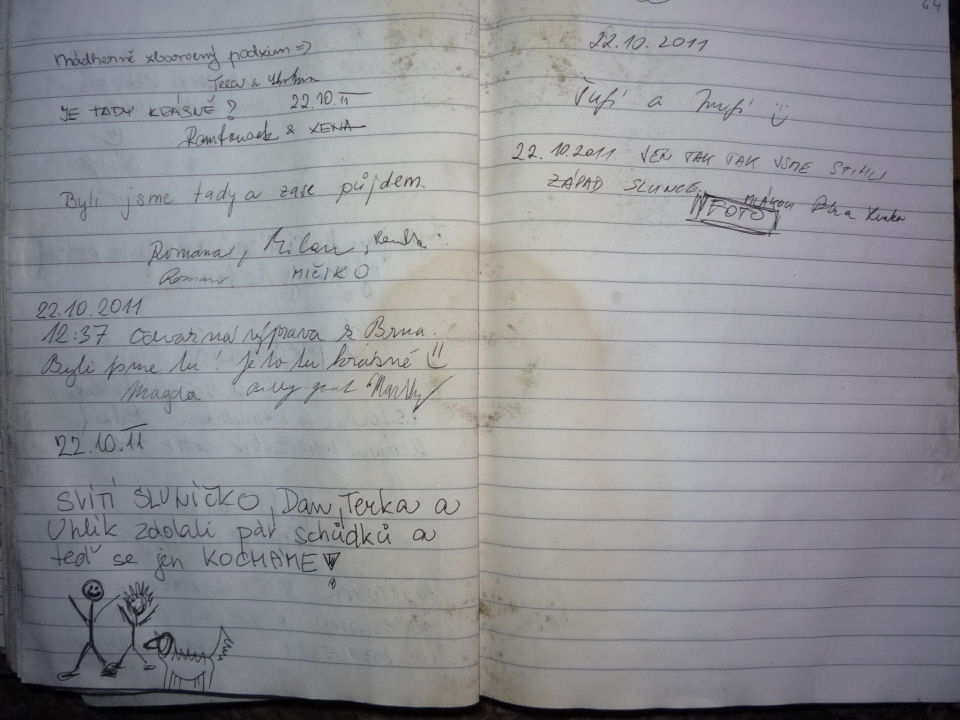 nádherně zbarvený podzim =>
Terra a
JE TADY KRÁSNĚ? 22.10.11
Ramfousek & XENA
Byli jsme tady a zase půjdem.
Romana, Milan, Renďa
Roman. MIČIKO
22.10.2011
12:37 Odvážná výprava z Brna.
Byli jsme tu! je to tu krásné
Magda
22.10.11
SVÍTÍ SLUNÍČKO, Dan, Terka a
Uhlík zdolali pár schůdků a
teď se jen KOCHÁME!
64
22.10.2011
Ťufí a Mufi
22.10.2011 JEN TAK TAK JSME STIHLI
ZÁPAD SLUNCE
FOTO